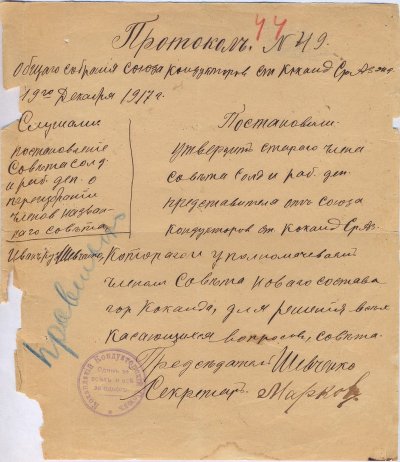 44
Протоколъ. № 49.
Общаго собранія Союза Кондукторовъ ст Коканд Ср. Аз жд
19го Декабря 1917 г.
Слушали
постановленіе
Совѣта солд
и раб. деп. о
переизбраніи
членов назван-
наго совѣта
Постановили:
утвердить стараго члена
совѣта солд и раб. деп.
представителя отъ союза
Кондукторов ст Коканд Ср Аз.
Шевченко, Котораго и уполномачивает
членом Совѣта новаго состава
гор Коканда, для решения всех
касающихся вопросов, совѣта.
Председатель Шевченко
Секретарь Марков
Один за
всѣхъ и всѣ
за одного